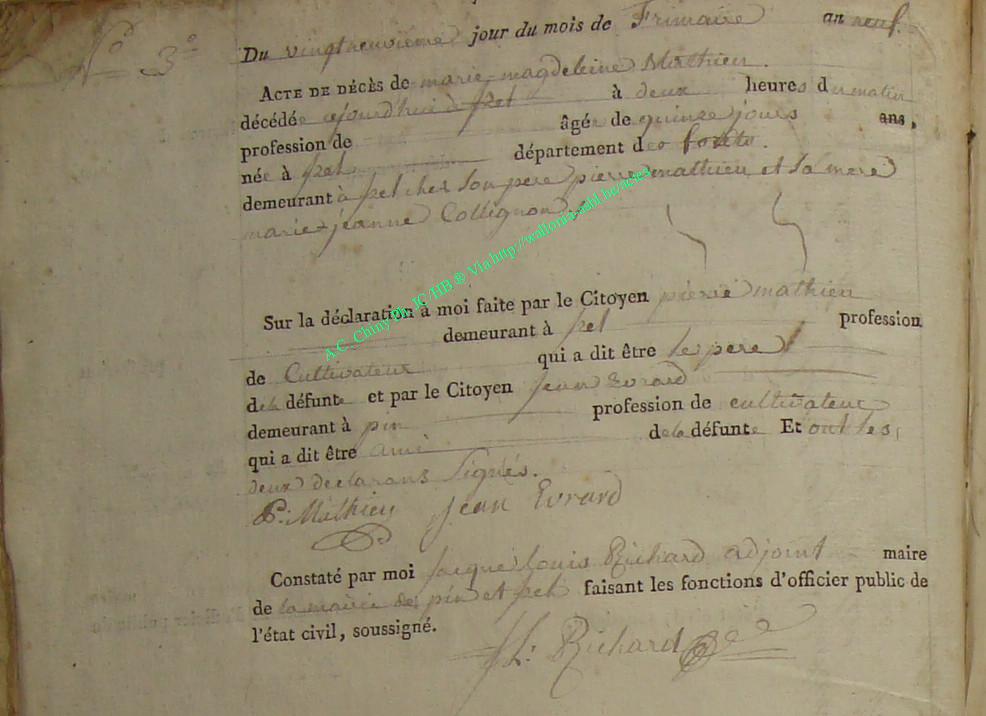 N° 3°
Du vingtneuvieme jour du mois de Frimaire an neuf.
ACTE DE DÉCÈS de marie magdeleine Mathieu.
décédée ajourdhui à Izel à deux heures du matin
profession de âgée de quinze jours ans,
née à Izel département des forêts.
demeurant à Izel chez son pere pierre mathieu et sa mere
marie jeanne Collignon
Sur la déclaration à moi faite par le Citoyen pierre mathieu
demeurant à Izel profession
de Cultivateur qui a dit être le pere
de la défunte et par le Citoyen Jean Evrard
demeurant à pin profession de cultivateur
qui a dit être ami de la défunte Et ont les
deux declarans Signés.
P: Mathieu Jean Evrard
Constaté par moi Jacque Louis Richard adjoint maire
de la mairie de pin et Izel faisant les fonctions d'officier public de
l'état civil, soussigné.
JL: Richard
A.C. Chiny Ph. JC/HB ® Via http://wallonia-asbl.be/actes